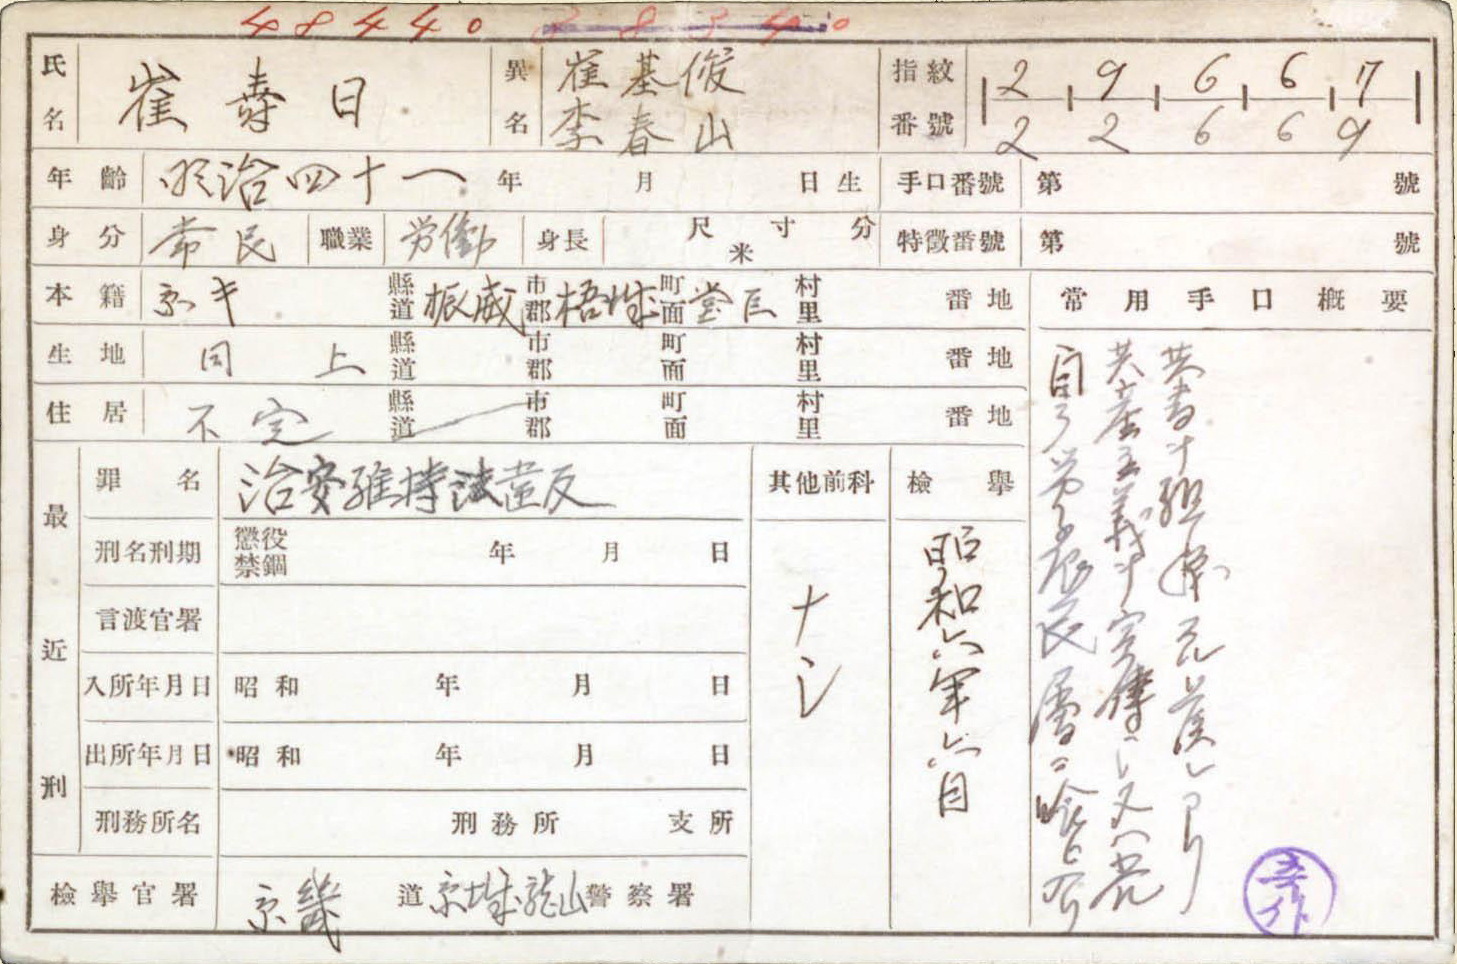 48440
氏名 崔壽日 異名 崔基俊 李春山 指紋番號 29667 22669
年齡 明治四十一年 月 日生 手口番號 第 號
身分 常民 職業 労働 身長 尺 寸 分 米 特徵番號 第 號
本籍 京キ 縣道 振威 市郡 梧城 町面 堂巨 村里 番地
生地 同上 縣道 市郡 町面 村里 番地
住居 不定 縣道 市郡 町面 村里 番地
常用手口概要
最近刑
罪名 治安維持法違反
刑名刑期 懲役 禁錮 年 月 日
言渡官署
入所年月日 昭和 年 月 日
出所年月日 昭和 年 月 日
刑務所名 刑務所 支所
其他前科 ナシ
檢擧 昭和六年六月
檢擧官署 京畿道 京城龍山警察署
共産主義